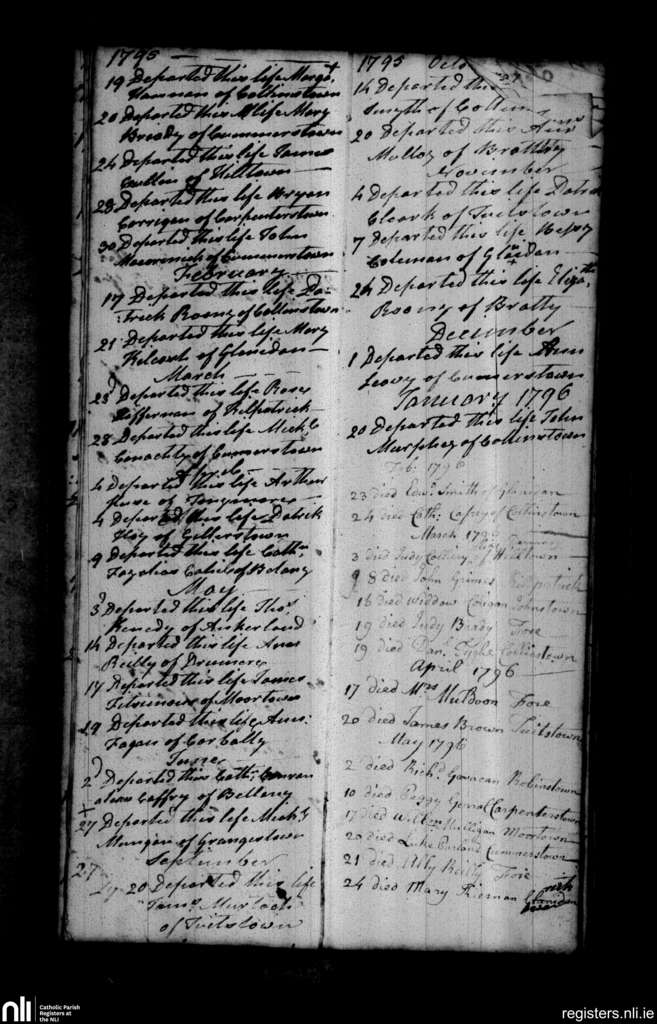 1795
19 Departed this life Margt
Hannan of Collinstown
20 Departed this life Mary
Brady of Cummerstown
24 Departed this life James
of Hilltown
28 Departed this life Bryan
Corrigan of Carpenterstown
30 Departed this life John
Macormick of Cummerstown
February
17 Departed this life Pa-
trick Roony of Collinstown
21 Departed this life Mary
of Glanidan
March
23 Departed this life Rose
Heffernan of Kilpatrick
28 Departed this life Michl
Conachty of Cumerstown
April
4 Departed this life Arthur
of
4 Departed this life Patrick
of Gillerstown
9 Departed this life Cathn
alias
May
3 Departed this life Thos
Kenedy of
14 Departed this life Anne
Reilly of Drumore
17 Departed this life James
of Moortown
29 Departed this life Ann
Fagan of Carbally
June
2 Departed this Cathn
alias Caffry of
27 Departed this life Michl
Mangan of Grangestown
September
27
20 Departed this life
James Murtach
of Tuitstown
1795 Octo
14 Departed this
Smyth of Collin
20 Departed this Ann
Molloy of Bratty
November
4 Departed this life Patrick
Cleark of Tuitstown
7 Departed this life
Coleman of Glanidan
24 Departed this life Elizath
Roony of Bratty
December
1 Departed this life Ann
Leavy of Cumerstown
January 1796
20 Departed this life John
Murphy of Collinstown
Feb: 1796
23 died Edwd Smith of Glanidan
24 died Cath: Cafrey of Collinstown
March 1796
3 died Judy of Hilltown
8 died John Grimes Kilpatrick
16 died Widdow Johnstown
19 died Judy Brady Fore
19 died Dan: Collinstown
April 1796
17 died Mrs Muldoon Fore
20 died James Brown Tuitstown
May 1796
2 died Richd Gavacan Robinstown
10 died Peggy Carpenterstown
17 died Willm Mulligan Moortown
20 died Luke Cummerstown
21 died Ally Reilly Fore
24 died Mary Kiernan Glanidan
nli
Catholic Parish
Registers at
the NLI
registers.nli.ie